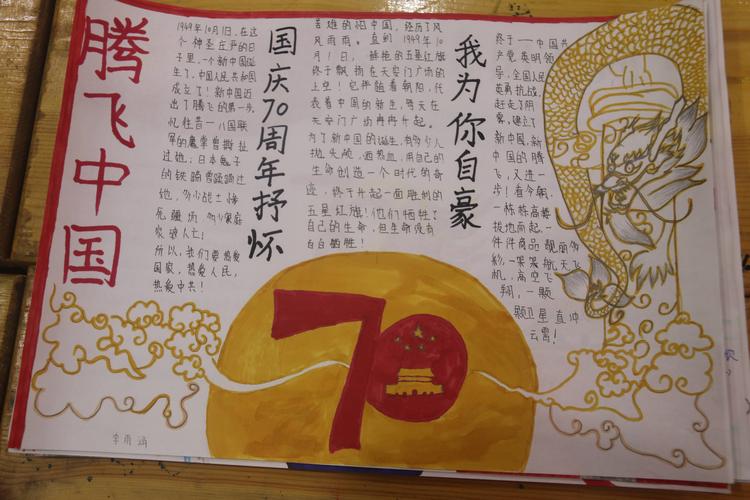 腾飞中国
1949年10月1日,在这
个神圣庄严的日
子里,一个新中国诞
生了,中国人民共和国
成立了!新中国迈
出了腾飞的第一步,
忆往昔一八国联
军的魔掌曾撕扯
过她;日本鬼子
的铁骑曾蹂躏过
她,多少战士惨
死疆场,多少家庭
家破人亡!
所以,我们要热爱
国家,热爱人民,
热爱中共!
国庆70周年抒怀
苦难的旧中国,经历了风
风雨雨。直到1949年10
月1日,鲜艳的五星红旗
终于飘扬在天安门广场的
上空!它伴随着朝阳,代
表着中国的新生,每天在
天安门广场冉冉升起。
为了新中国的诞生,有多少人
抛头颅,洒热血,用自己的
生命创造一个时代的奇
迹,终于升起一面胜利的
五星红旗!他们牺牲了
自己的生命,但生命没有
白白牺牲!
我为你自豪
终于一中国共
产党英明领
导,全国人民
英勇抗战,
赶走了阴
霾,建立了
新中国,新
中国的腾
飞,又进一
步!看今朝,
一栋栋高楼
拔地而起,一
件件商品靓丽多
彩,一架架航天飞
机,高空飞
翔,一颗
颗卫星直冲
云霄!
70
李雨涵